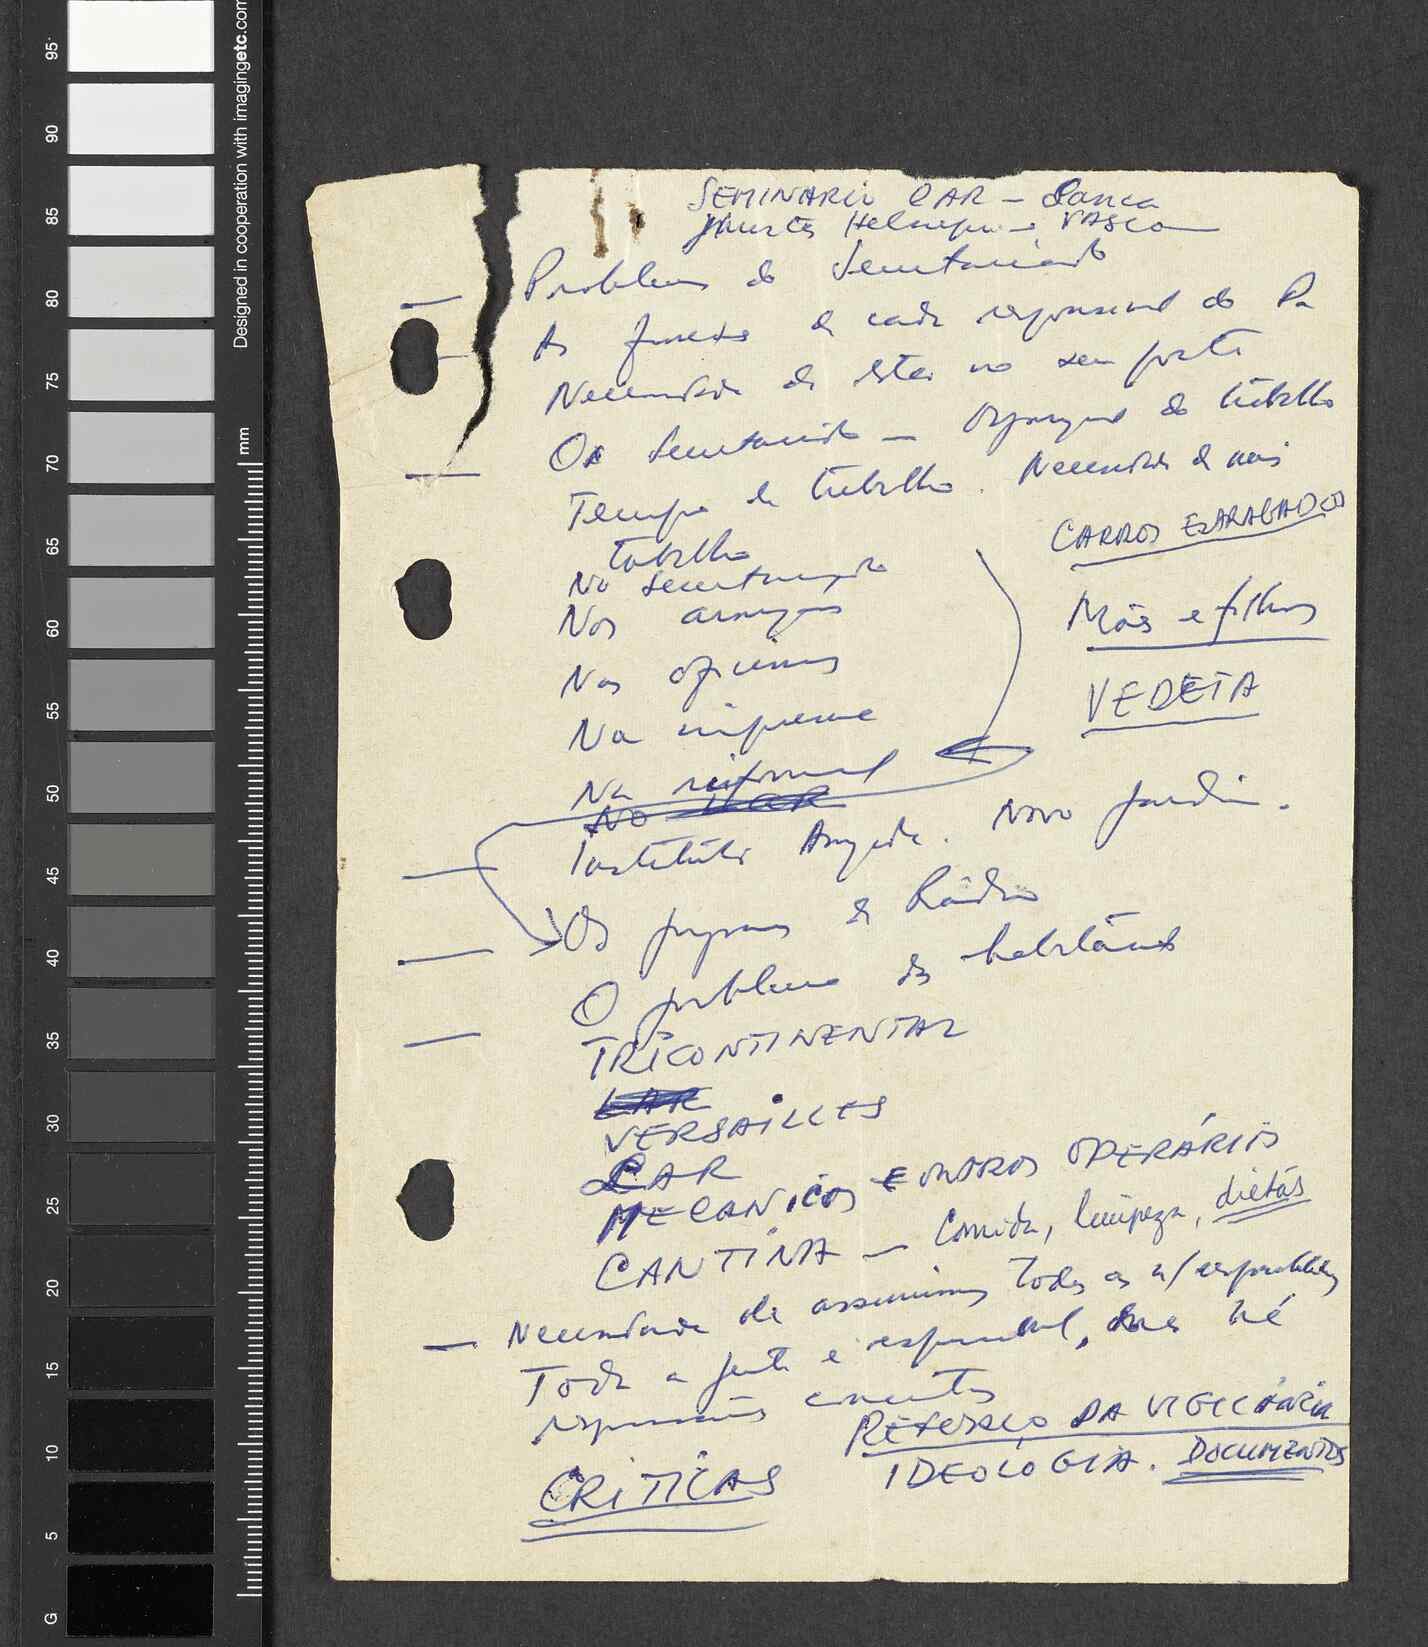 SEMINARIO LAR –
VASCO
Problemas do Secretariado
As funções de cada responsavel do Pa
Necessidade de estar no seu posto
O Secretariado — do trabalho
Tempo de trabalho. Necessidade de mais
trabalho
CARROS
No
Nos armazens
Mães e filhos
Nas oficinas
VEDETA
Na imprensa
Na
No LAR
Instituto Amizade. Novo Jardim.
Os programas de Rádio
O problema dos
TRICONTINENTAL
LAR
VERSAILLES
LAR
MECANICOS E OUTROS OPERÁRIOS
CANTINA — Comida, limpeza, dietas
— Necessidade de assumirmos todas as n/
Toda a gente é responsavel, mas há
responsaveis concretos
REFORÇO DA VIGILÂNCIA
IDEOLOGIA. DOCUMENTOS
CRITICAS
95
90
85
80
75
70
65
60
55
50
45
40
35
30
25
20
15
10
5
G
mm
Designed in cooperation with imagingetc.com